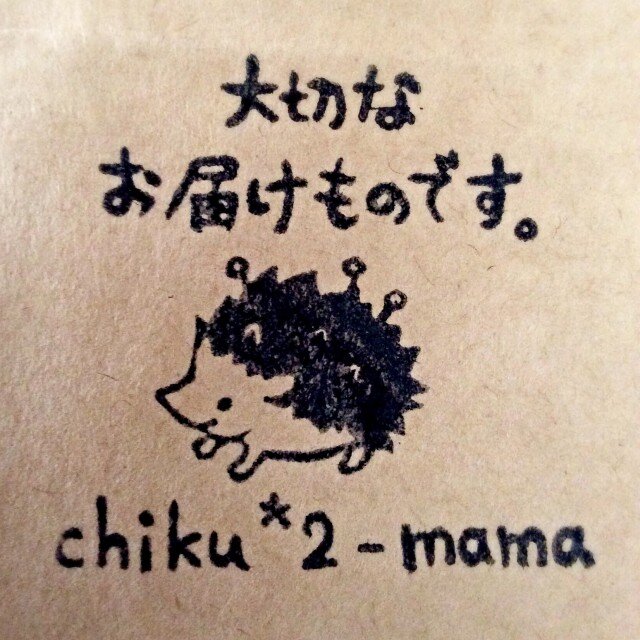 大切な
お届けものです。
chiku*2-mama